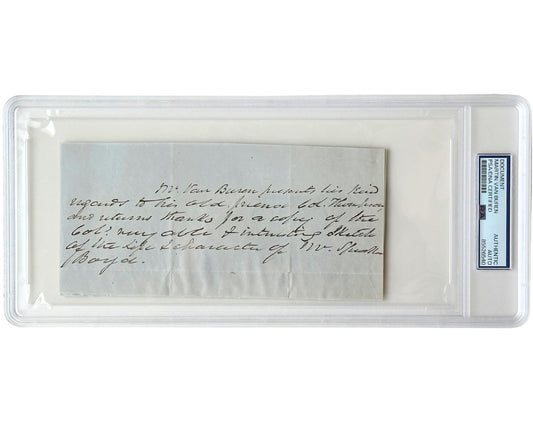 Mr. Van Buren presents his kind
regards to his old friend Col. Thompson
and returns thanks for a copy of the
Col's very able & interesting sketch
of the life & character of Mr. Speaker
Boyd.
DOCUMENT
MARTIN VAN BUREN
PSA/DNA CERTIFIED
AUTHENTIC
AUTO